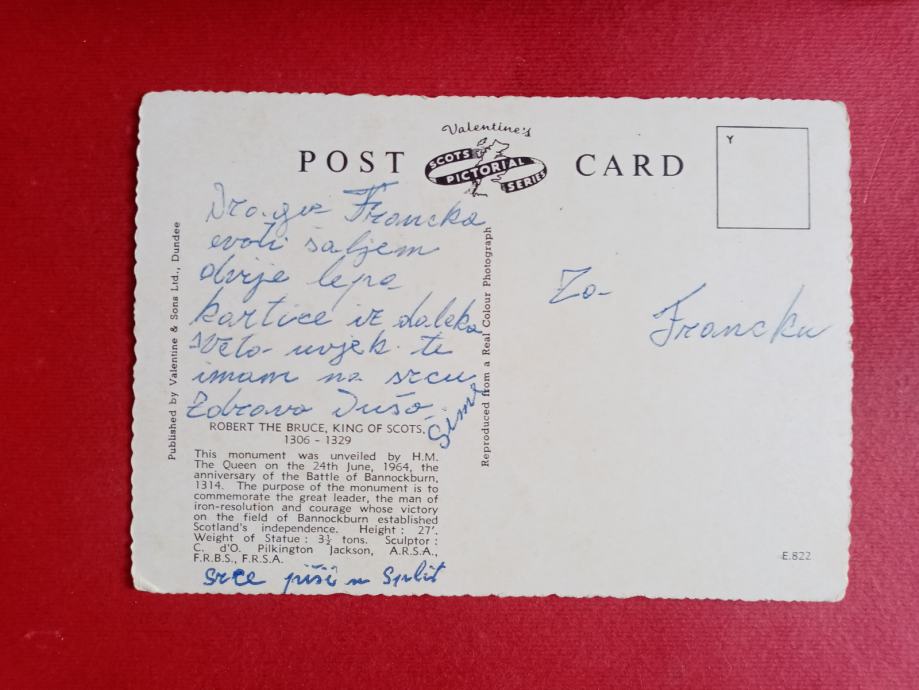 Valentine's
POST CARD
SCOTS
PICTORIAL
SERIES
Y
Draga Francka
evoti šaljem
dvije lepa
kartice iz daleka
sveta uvjek te
imam na srcu
Zdravo Dušo
Sime
Published by Valentine & Sons Ltd., Dundee
Reproduced from a Real Colour Photograph
Za
Francku
ROBERT THE BRUCE, KING OF SCOTS,
1306 - 1329
This monument was unveiled by H.M.
The Queen on the 24th June, 1964, the
anniversary of the Battle of Bannockburn,
1314. The purpose of the monument is to
commemorate the great leader, the man of
iron-resolution and courage whose victory
on the field of Bannockburn established
Scotland's independence. Height : 27'.
Weight of Statue : 3½ tons. Sculptor :
C. d'O. Pilkington Jackson, A.R.S.A.,
F.R.B.S., F.R.S.A.
E.822
srce piši u Split